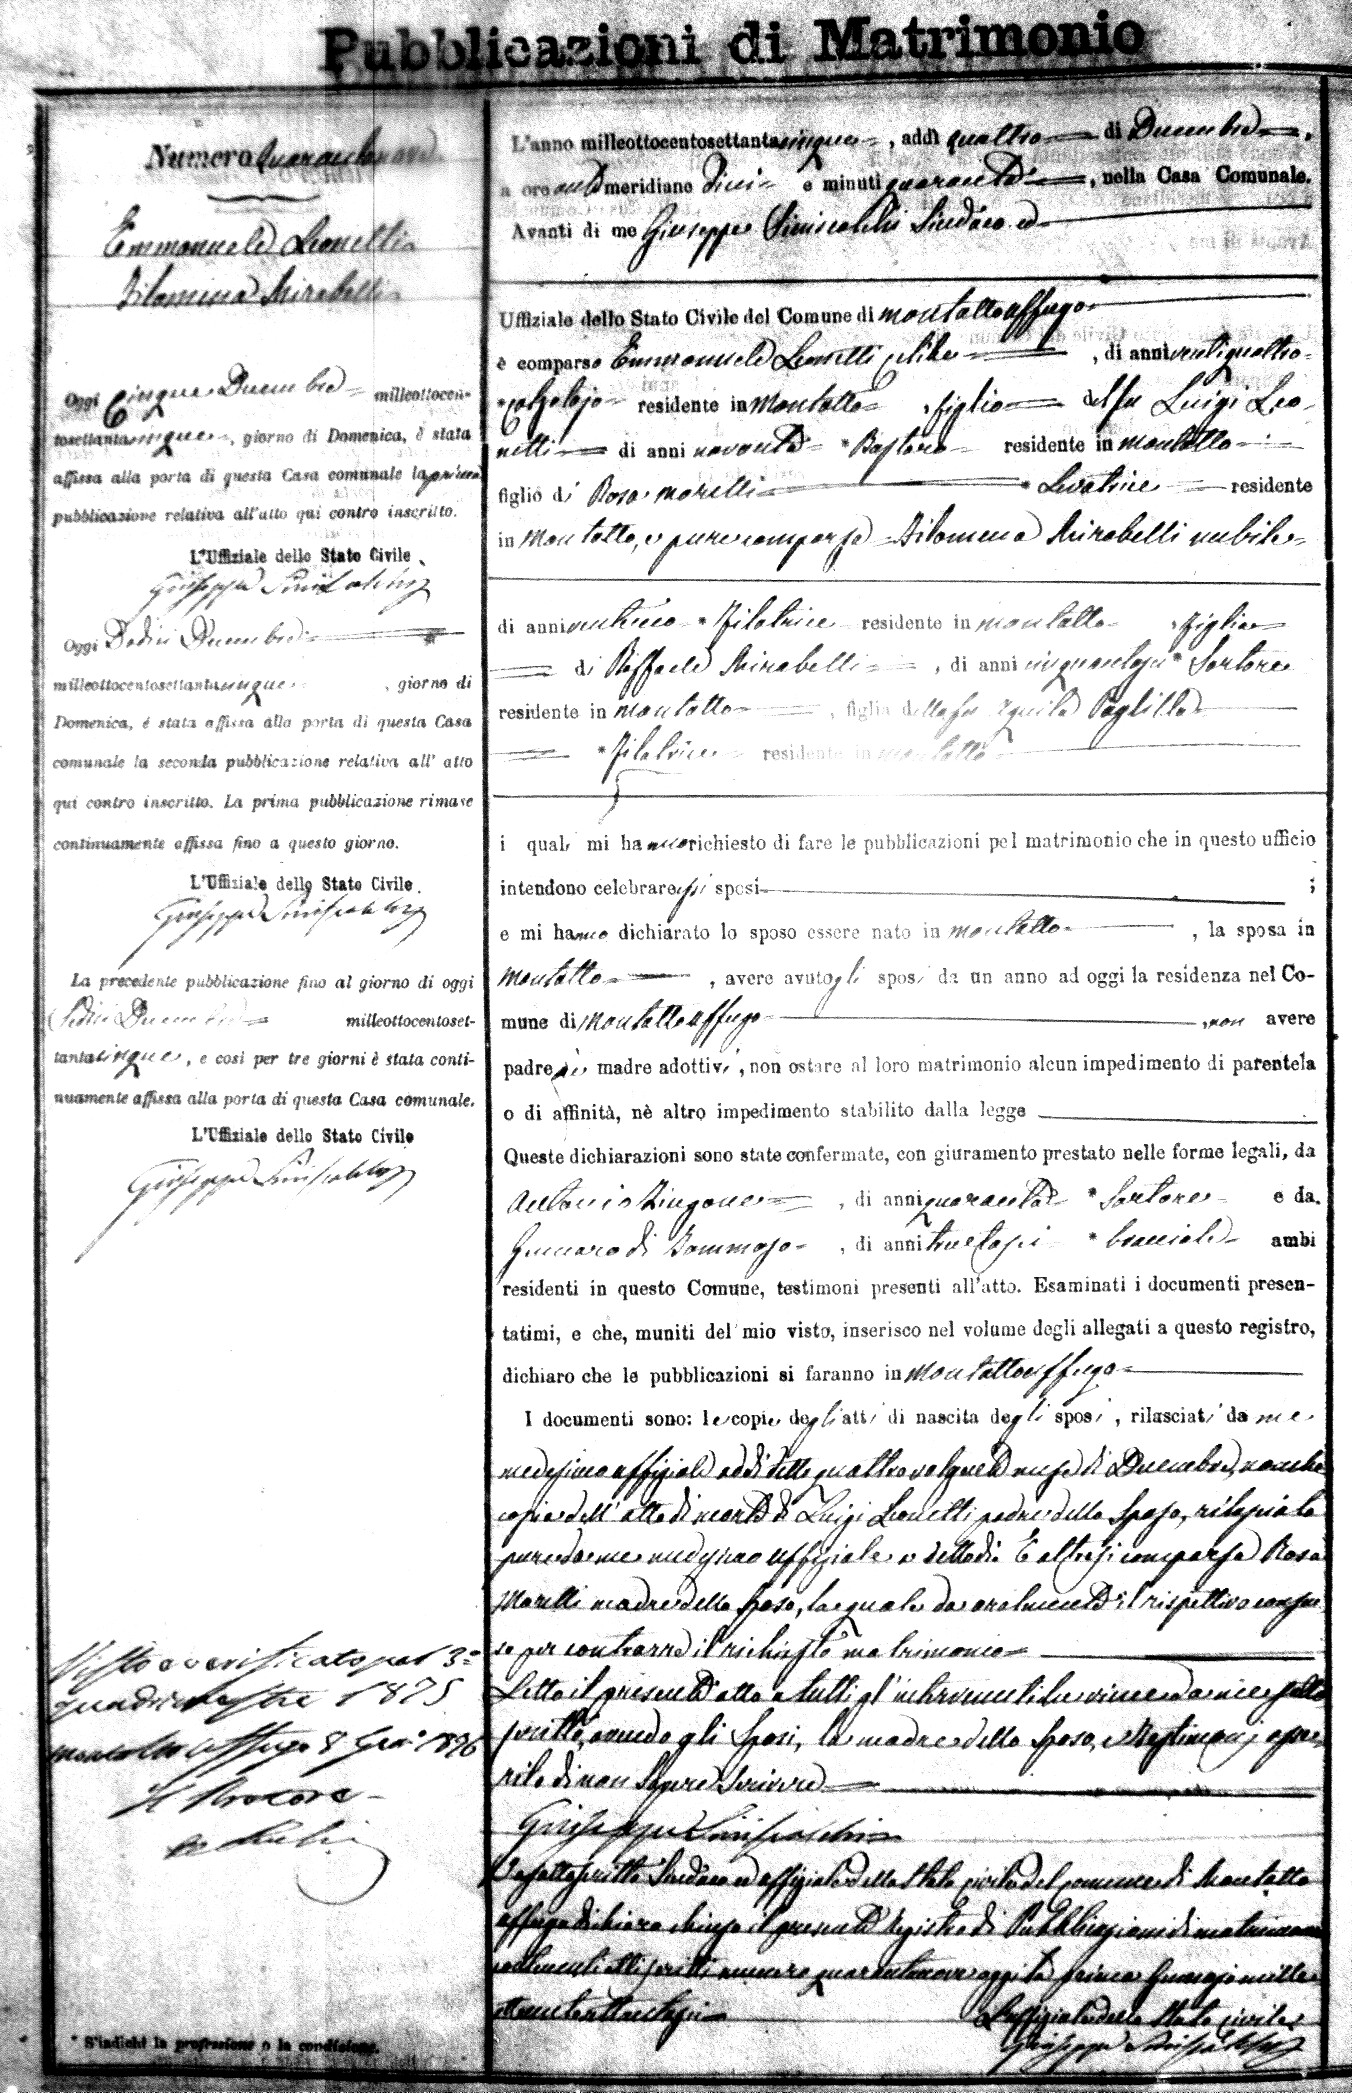 Pubblicazioni di Matrimonio
Numero quarantanove
Emmanuele Leonetti
Filomena Mirabelli
Oggi Cinque Decembre milleottocen-
tosettantacinque, giorno di Domenica, è stata
affissa alla porta di questa Casa comunale la prima
pubblicazione relativa all'atto qui contro inscritto.
L'Uffiziale dello Stato Civile
Giuseppe Siniscalchi
Oggi Dodici Decembre
milleottocentosettantacinque, giorno di
Domenica, è stata affissa alla porta di questa Casa
comunale la seconda pubblicazione relativa all'atto
qui contro inscritto. La prima pubblicazione rimase
continuamente affissa fino a questo giorno.
L'Uffiziale dello Stato Civile
Giuseppe Siniscalchi
La precedente pubblicazione fino al giorno di oggi
Sedici Decembre milleottocentoset-
tantacinque, e così per tre giorni è stata conti-
nuamente affissa alla porta di questa Casa comunale.
L'Uffiziale dello Stato Civile
Giuseppe Siniscalchi
Visto e verificato pel 3°
quadrimestre 1875
Montalto Uffugo 8 Gen° 1876
Il Pretore
* S'indichi la professione o la condizione.
L'anno milleottocentosettantacinque, addì quattro di Decembre,
a ore antimeridiane dieci e minuti quaranta, nella Casa Comunale.
Avanti di me Giuseppe Siniscalchi Sindaco ed
Uffiziale dello Stato Civile del Comune di Montalto Uffugo
è comparso Emmanuele Leonetti celibe, di anni ventiquattro
*calzolajo residente in Montalto, figlio del fu Luigi Leo-
netti di anni novanta *Pastore residente in Montalto
figlio di Rosa Morelli * Levatrice residente
in Montalto, e pure comparsa Filomena Mirabelli nubile
di anni *Filatrice residente in Montalto, figlia
di Raffaele Mirabelli, di anni cinquantasei *Sartore
residente in Montalto, figlia della fu Aquila
*Filatrice residente in Montalto
i quali mi hanno richiesto di fare le pubblicazioni pel matrimonio che in questo ufficio
intendono celebrare essi sposi;
e mi hanno dichiarato lo sposo essere nato in Montalto, la sposa in
Montalto, avere avuto gli sposi da un anno ad oggi la residenza nel Co-
mune di Montalto Uffugo, non avere
padre nè madre adottivi, non ostare al loro matrimonio alcun impedimento di parentela
o di affinità, nè altro impedimento stabilito dalla legge
Queste dichiarazioni sono state confermate, con giuramento prestato nelle forme legali, da
Antonio Zingone, di anni quaranta *Sartore e da
Gennaro di Tommaso, di anni trentasei *bracciale ambi
residenti in questo Comune, testimoni presenti all'atto. Esaminati i documenti presen-
tatimi, e che, muniti del mio visto, inserisco nel volume degli allegati a questo registro,
dichiaro che le pubblicazioni si faranno in Montalto Uffugo
I documenti sono: le copie degli atti di nascita degli sposi, rilasciati da me
medesimo uffiziale addì detto quattro volgente mese di Decembre, nonche
copia dell'atto di morte di Luigi Leonetti padre dello Sposo, rilasciata
pure da me medesimo uffiziale a detto dì. È altresì comparsa Rosa
Morelli madre dello Sposo, la quale da oralmente il rispettivo consen
so per contrarre il richiesto matrimonio
Letto il presente atto a tutti gl'intervenuti viene da me sotto
scritto, avendo gli Sposi, la madre dello Sposo, e testimonj asse
rito di non sapere scrivere
Giuseppe Siniscalchi
Io sottoscritto Sindaco ed uffiziale dello Stato civile del Comune di Montalto
Uffugo dichiaro chiuso il presente registro di Pubblicazioni di matrimonio
atti scritti numero quarantanove oggi lì primo Gennajo mille
ottocentosettantasei
L'uffiziale dello Stato civile
Giuseppe Siniscalchi